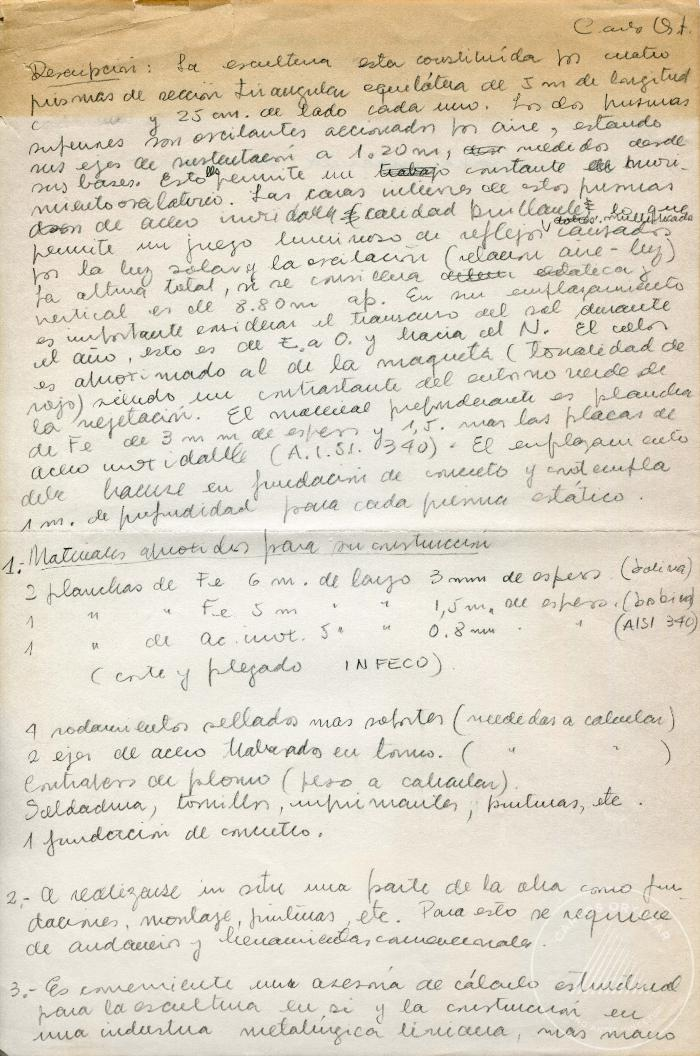 Descripción: La escultura esta constituída por cuatro
prismas de sección triangular equilátera de 5 m de longitud
y 25 cm. de lado cada uno. Los dos prismas
superiores son oscilantes accionados por aire, estando
sus ejes de sustentación a 1.20 m, medidos desde
sus bases. Esto les permite un trabajo constante de movi-
miento oscilatorio. Las caras de estos prismas
son de acero inoxidable calidad brillante lo que
permite un juego luminoso de reflejos causados
por la luz solar y la oscilación (relación aire-luz)
La altura total, si se considera estática y
vertical es de 8.80 m ap. En su emplazamiento
es importante considerar el transcurso del sol durante
el año, esto es de E. a O. y hacia el N. El color
es aproximado al de la maqueta (tonalidad de
rojo) siendo un contrastante del entorno verde de
la vegetación. El material preponderante es plancha
de Fe de 3 m m de espesor y 1,5. mas las placas de
acero inoxidable (A.I.SI. 340). El emplazamiento
debe hacerse en fundación de concreto y contempla
1 m. de profundidad para cada prisma estático.
1.- Materiales para su construcción
2 planchas de Fe 6 m. de largo 3 mm de espesor (bobina)
1 " " Fe 5 m " " 1,5 m. de espesor. (bobina)
1 " de ac. inox. 5 " " 0.8 mm " (AISI 340)
(corte y plegado INFECO).
4 rodamientos sellados mas soportes (medidas a calcular)
2 ejes de acero trabajados en torno. ( " " )
Contrapeso de plomo (peso a calcular).
Soldadura, tornillos, imprimantes, pinturas, etc.
1 fundación de concreto.
2.- A realizarse in situ una parte de la obra como fun-
daciones, montaje, pinturas, etc. Para esto se requiere
de andamios y herramientas convencionales.
3.- Es conveniente una asesoría de cálculo estructural
para la escultura en si y la construcción en
una industria metalúrgica liviana, mas mano